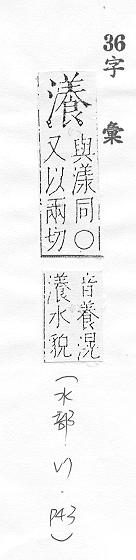 36字彙
瀁
與漾同〇
又以兩切
音養滉
瀁水貌
(水部 . P43)